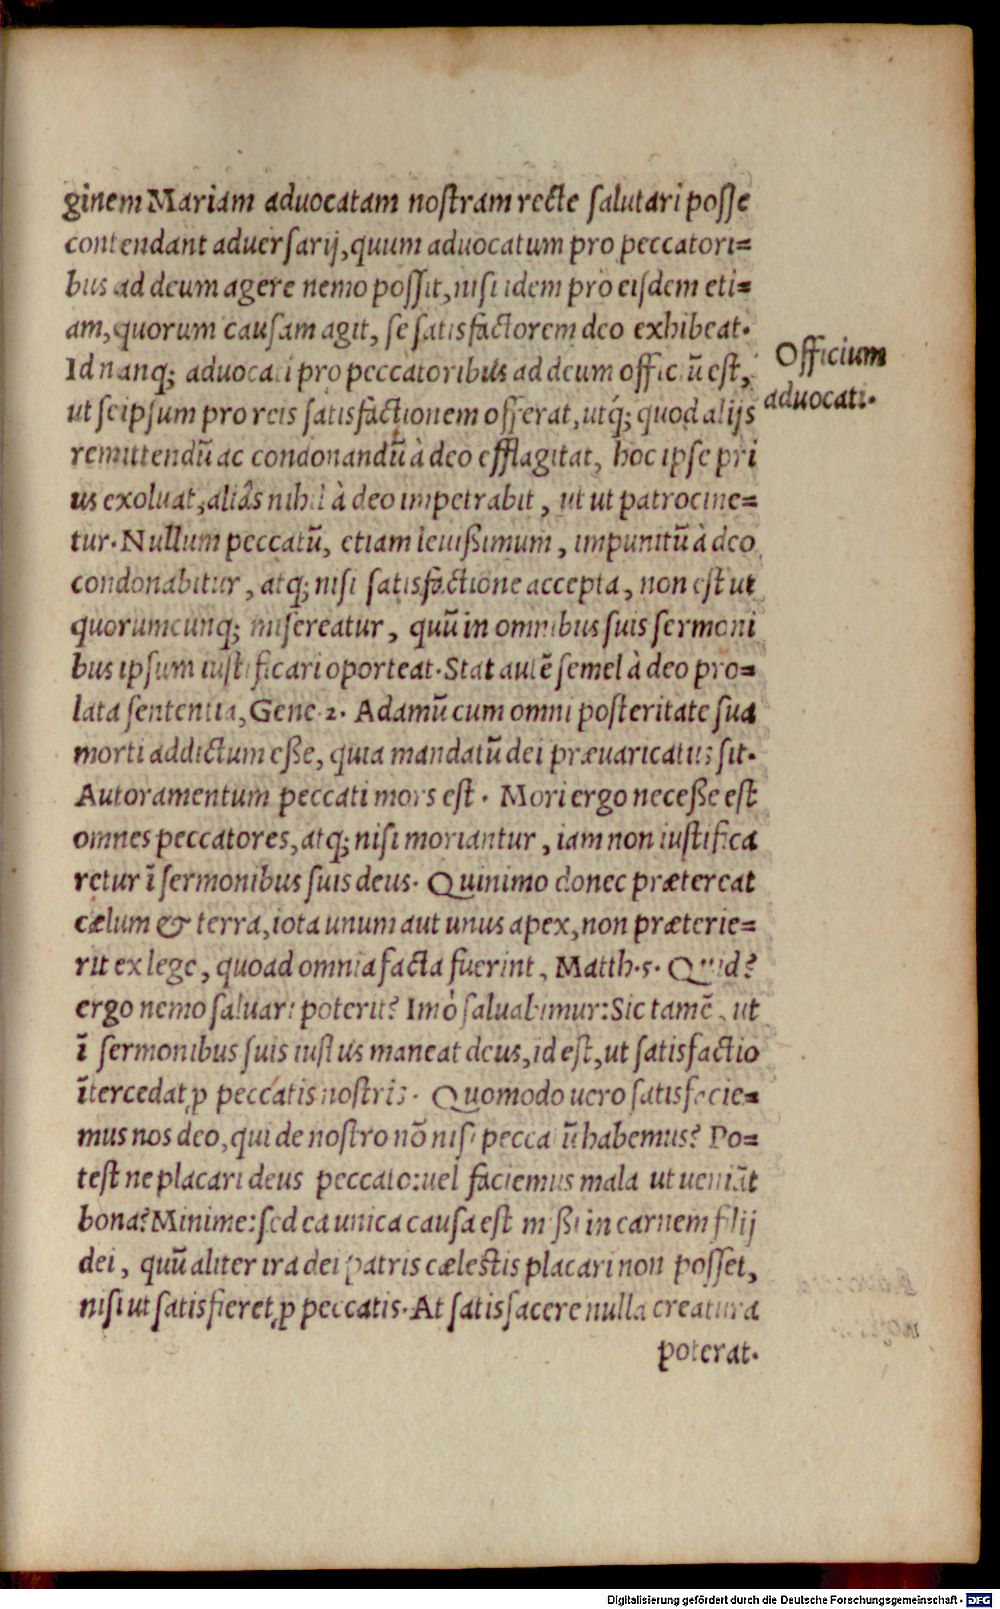 ginem Mariam advocatam nostram recte salutari posse
contendant adversarij, quum advocatum pro peccatori=
bus ad deum agere nemo possit, nisi idem pro eisdem eti=
am, quorum causam agit, se satisfactorem deo exhibeat.
Id nanq; advocati pro peccatoribus ad deum officiũ est,
ut seipsum pro reis satisfactionem offerat, utq́; quod alijs
remittendũ ac condonandũ à deo efflagitat, hoc ipse pri
us exoluat, aliâs nihil à deo impetrabit, ut ut patrocine=
tur. Nullum peccatũ, etiam leuißimum, impunitũ à deo
condonabitur, atq; nisi satisfactione accepta, non est ut
quorumcunq; misereatur, quũ in omnibus suis sermoni
bus ipsum iustificari oporteat. Stat autẽ semel à deo pro=
lata sententia, Gene. 2. Adamũ cum omni posteritate sua
morti addictum eße, quia mandatũ dei prævaricatus sit.
Autoramentum peccati mors est. Mori ergo neceße est
omnes peccatores, atq; nisi moriantur, iam non iustifica
retur ĩ sermonibus suis deus. Quinimo donec prætereat
cælum & terra, iota unum aut unus apex, non præterie=
rit ex lege, quoad omnia facta fuerint, Matth. 5. Quid?
ergo nemo saluari poterit? Imò saluabimur: Sic tamẽ, ut
ĩ sermonibus suis iustus maneat deus, id est, ut satisfactio
ĩtercedat ꝓ peccatis nostris. Quomodo vero satisfacie=
mus nos deo, qui de nostro nõ nisi peccatũ habemus? Po=
test ne placari deus peccato: vel faciemus mala ut ueniãt
bona? Minime: sed ea unica causa est mißi in carnem filij
dei, quũ aliter ira dei patris cælestis placari non posset,
nisi ut satisfieret ꝓ peccatis. At satisfacere nulla creatura
poterat.
Officium
advocati.
Digitalisierung gefördert durch die Deutsche Forschungsgemeinschaft - DFG